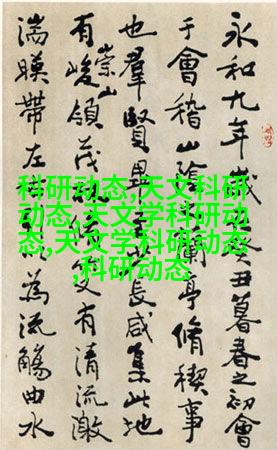 永和九年歲在癸丑暮春之初會
于會稽山陰之蘭亭脩稧事
也羣賢畢至少長咸集此地
有崇山峻領茂林脩竹又有清流激
湍暎帶左右引以為流觴曲水
科研动态,天文科研
动态,天文学科研动
态,天文学科研动态
,科研动态